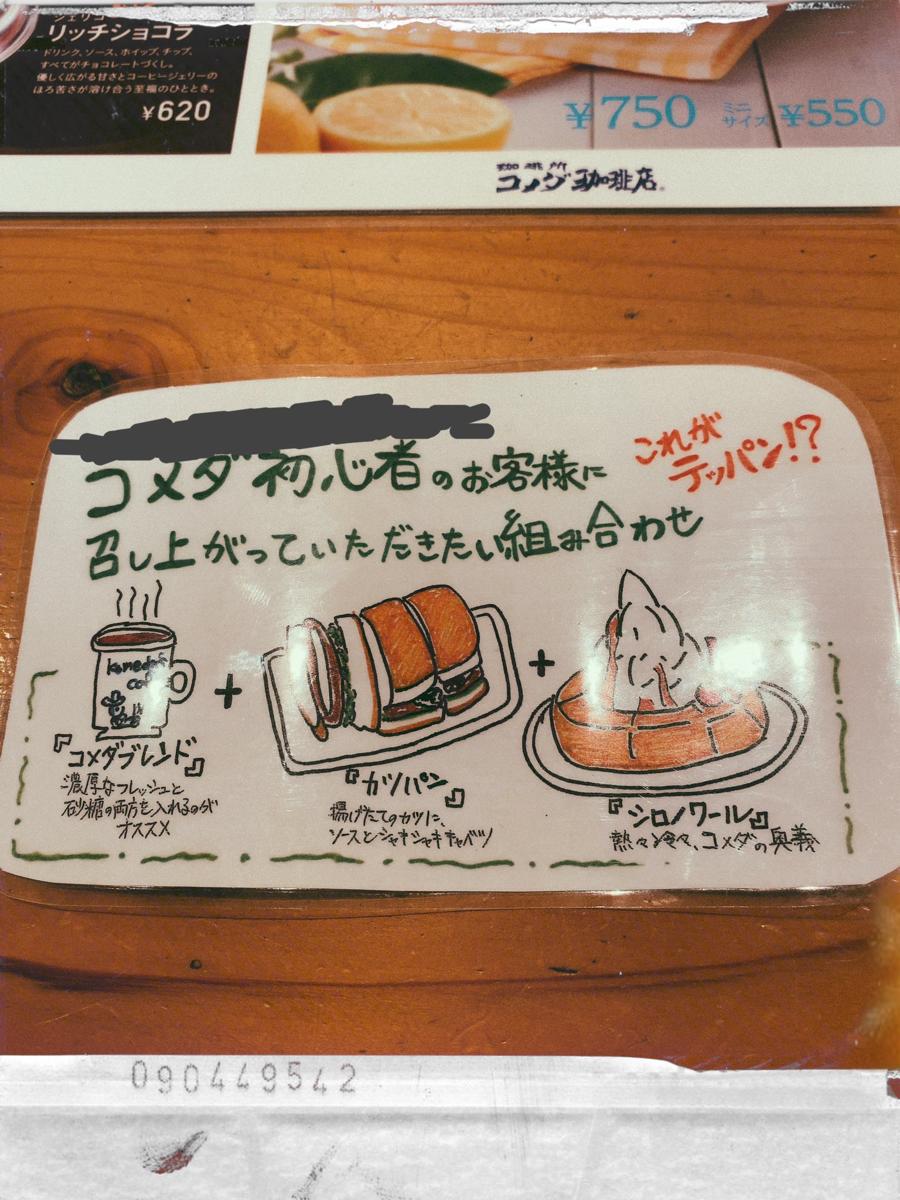 ジェリコ
リッチショコラ
ドリンク、ソース、ホイップ、チップ、
すべてがチョコレートづくし。
優しく広がる甘さとコーヒージェリーの
ほろ苦さが溶け合う至福のひととき。
¥620
¥750 ミニサイズ ¥550
珈琲所
コメダ珈琲店®
コメダ初心者のお客様に
これが
テッパン!?
召し上がっていただきたい組み合わせ
komeda's
+
+
『コメダブレンド』
濃厚なフレッシュと
砂糖の両方を入れるのが
オススメ
『カツパン』
揚げたてのカツに、
ソースとシャキシャキキャベツ
『シロノワール』
熱々冷々、コメダの奥義
090449542